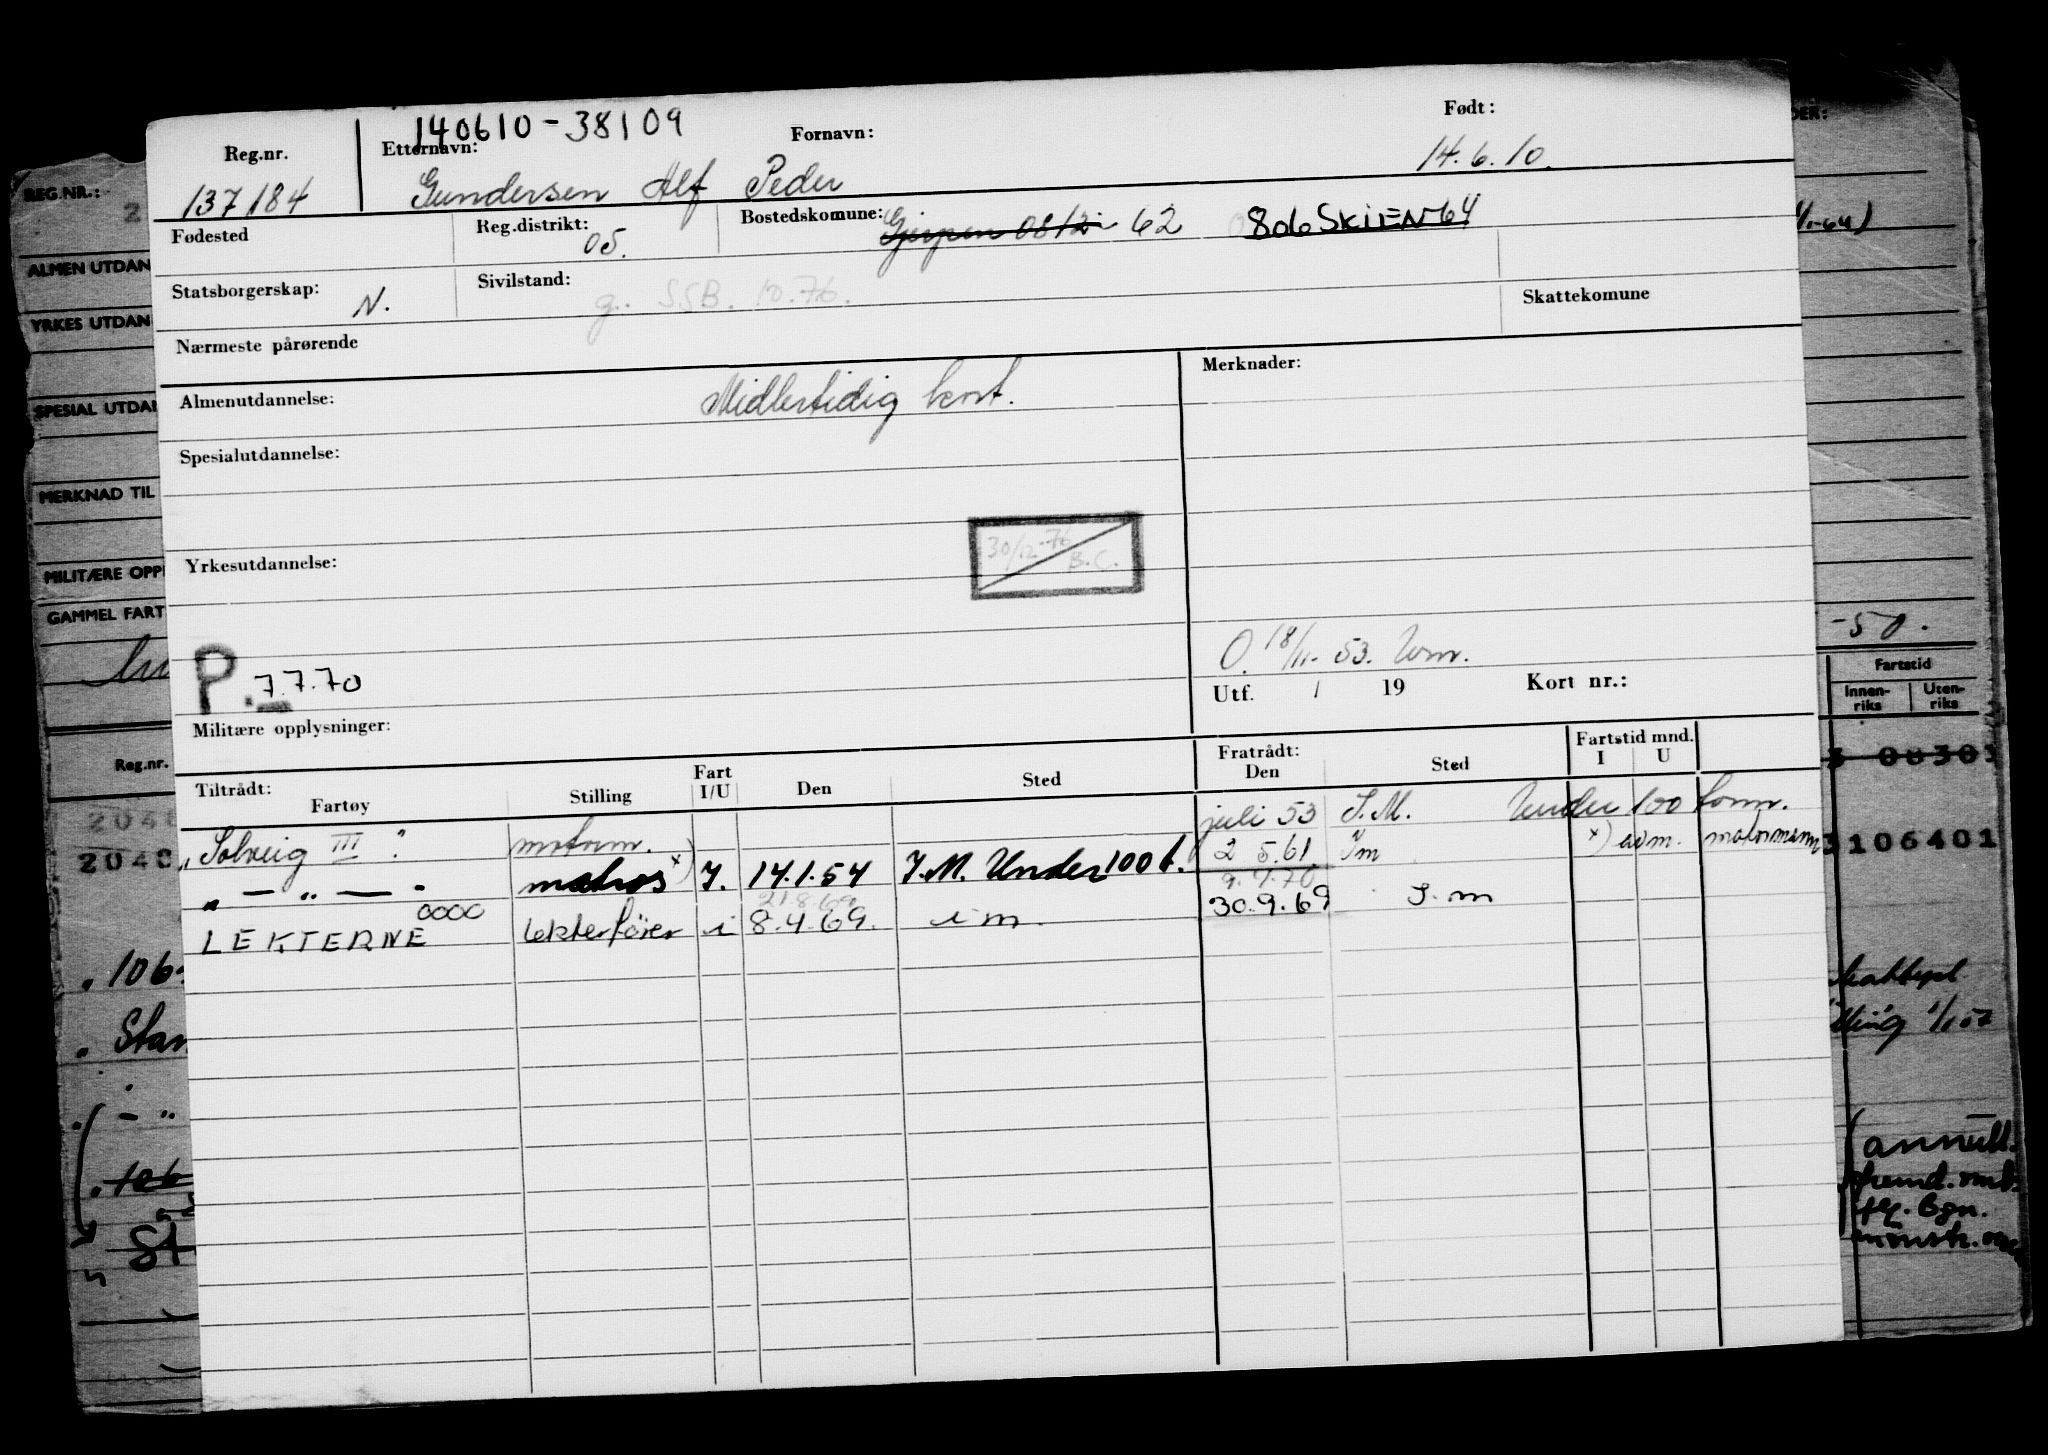 140610-38109
Reg.nr. Etternavn: Fornavn: Født:
137184 Gundersen Alf Peder 14.6.10.
Fødested Reg.distrikt: 05. Bostedskomune: Gjerpen 0812 62 806 SKIEN 64
Statsborgerskap: N. Sivilstand: g. SSB. 10.76. Skattekomune
Nærmeste pårørende
Almenutdannelse: Midlertidig kort. Merknader:
Spesialutdannelse:
30/12-76
B.C.
Yrkesutdannelse:
P. 7.7.70
O. 18/11-53.
Utf. / 19 Kort nr.:
Militære opplysninger:
Tiltrådt: Fart Fratrådt: Fartstid mnd.
Fartøy Stilling I/U Den Sted Den Sted I U
"Solveig III" motorm. juli 53 I.M. Under 100 tonn.
" — " — " matros x) I. 14.1.54 I.M. Under 100 t. 2 5.61 Im x) avm. motormann
21.8.69 9.7.70
0000
LEKTERNE lekterfører i 8.4.69. i m. 30.9.69 I.m
REG.NR.: 2
ALMEN UTDAN
YRKES UTDAN
SPESIAL UTDAN
MERKNAD TIL
MILITÆRE OPPL
GAMMEL FART
Reg.nr.
2048
2048
"106-
Stan
- "
"106
St
DER:
1/1-64)
-50.
Fartstid
Innen-
riks
Uten-
riks
3 00303
3106401
1/1 57
(annull.
fremd.
Bgn.
mønstr.